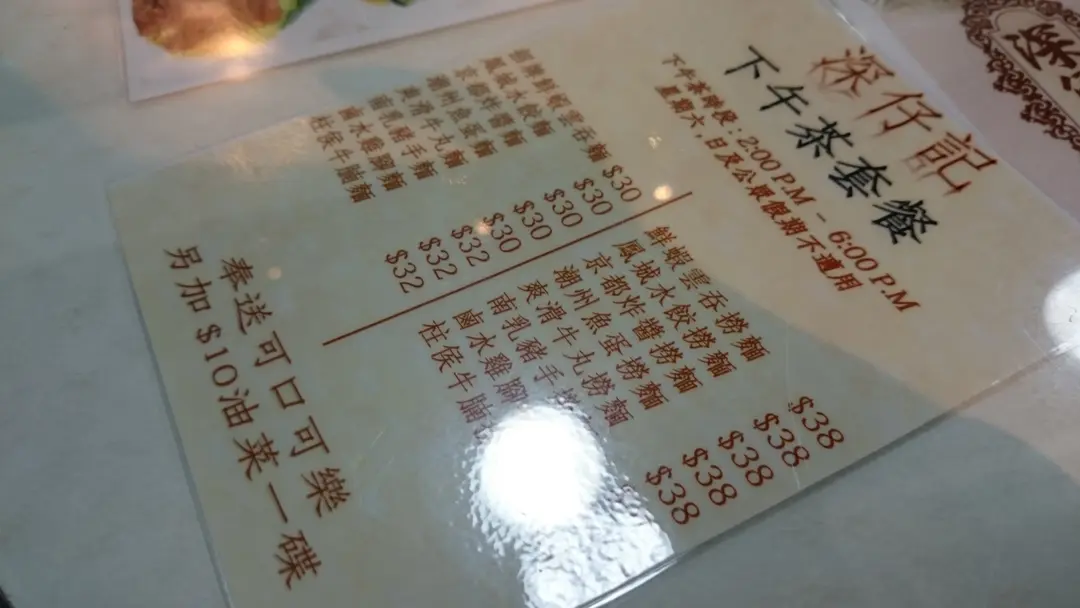 深仔記
下午茶套餐
下午茶時段：2:00 P.M – 6:00 P.M
星期六, 日及公眾假期不適用
鮮蝦雲吞麵 $30
鳳城水餃麵 $30
京都炸醬麵 $30
潮州魚蛋麵 $30
爽滑牛丸麵 $30
南乳豬手麵 $32
鹵水雞腳麵 $32
柱侯牛腩麵 $32
鮮蝦雲吞撈麵 $38
鳳城水餃撈麵 $38
京都炸醬撈麵 $38
潮州魚蛋撈麵 $38
爽滑牛丸撈麵 $38
南乳豬手
鹵水雞腳
柱侯牛腩
奉送可口可樂
另加$10油菜一碟
深